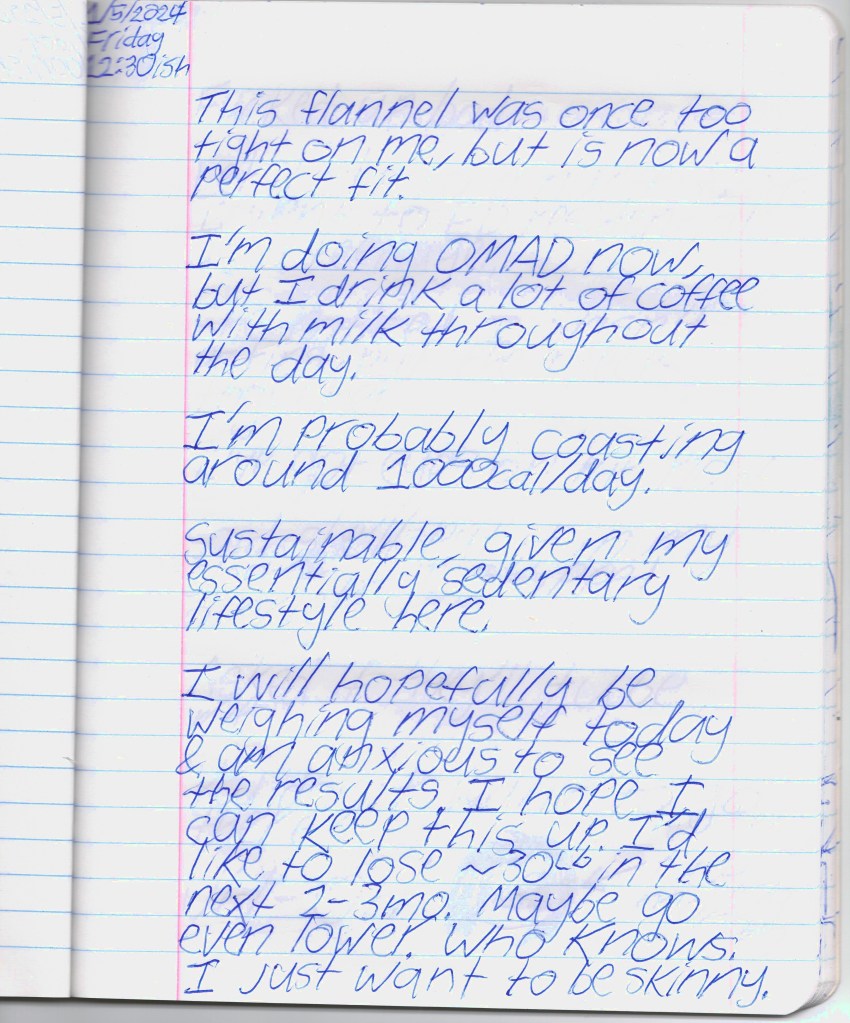 1/5/2024
Friday
12:30ish
This flannel was once too
tight on me, but is now a
perfect fit.
I'm doing OMAD now,
but I drink a lot of coffee
with milk throughout
the day.
I'm probably coasting
around 1000cal/day.
Sustainable, given my
essentially sedentary
lifestyle here.
I will hopefully be
weighing myself today
& am anxious to see
the results. I hope I
can keep this up. I'd
like to lose ~30lb in the
next 2-3mo. Maybe go
even lower. Who knows.
I just want to be skinny.